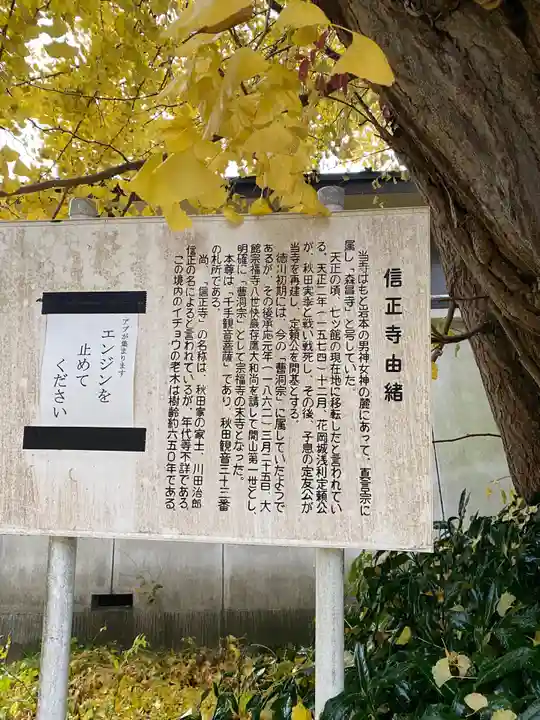 信正寺由緒
当寺はもと岩本の男神女神の麓にあって、真言宗に
属し「森昌寺」と号していた。
天正の頃、七ツ館の現在地に移転したと言われてい
る。天正二年(一五七四)十二月、花岡城浅利定頼公
が、秋田実季と戦い戦死し、その後、子息の定友公が
当寺を再建し、定頼公を開基とする。
徳川初期には、今の「曹洞宗」に属していたようで
あるが、その後承応元年(一六六二)三月二十五日、大
館宗福寺八世快巌存鷹大和尚を請して開山第一世とし、
明確に「曹洞宗」として宗福寺の末寺となった。
本尊は「千手観音菩薩」であり、秋田観音三十三番
の札所である。
尚、「信正寺」の名称は、秋田家の家士、川田治郎
信正の名によると言われているが、年代等不詳である。
この境内のイチョウの老木は樹齢約六五〇年である。
アブが集まります
エンジンを
止めて
ください